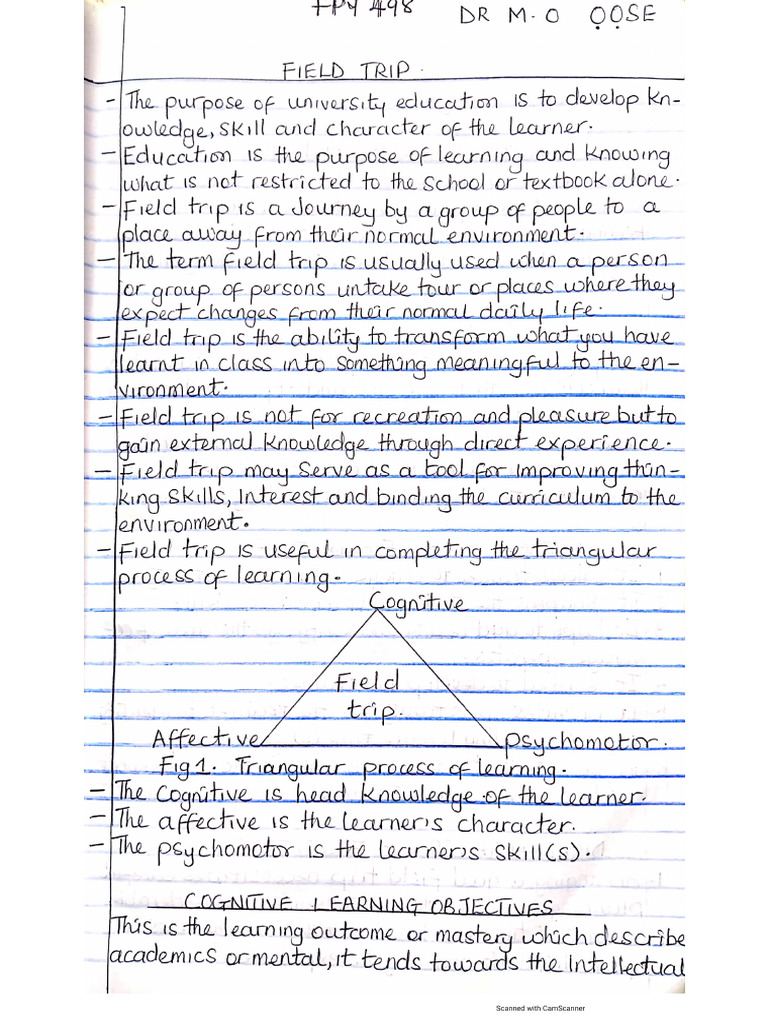 498 DR M.O ỌỌSE
FIELD TRIP.
- The purpose of university education is to develop kn-
owledge, skill and character of the learner.
- Education is the purpose of learning and knowing
what is not restricted to the school or textbook alone.
- Field trip is a Journey by a group of people to a
place away from their normal environment.
- The term field trip is usually used when a person
or group of persons untake tour or places where they
expect changes from their normal daily life.
- Field trip is the ability to transform what you have
learnt in class into something meaningful to the en-
vironment.
- Field trip is not for recreation and pleasure but to
gain external knowledge through direct experience.
- Field trip may serve as a tool for improving thin-
king skills, interest and binding the curriculum to the
environment.
- Field trip is useful in completing the triangular
process of learning.
Cognitive
Field
trip.
Affective psychomotor.
Fig 1. Triangular process of learning.
- The Cognitive is head knowledge of the learner.
- The affective is the learner's character.
- The psychomotor is the learner's skill(s).
COGNITIVE LEARNING OBJECTIVES
This is the learning outcome or mastery which describe
academics or mental, it tends towards the intellectual
Scanned with CamScanner